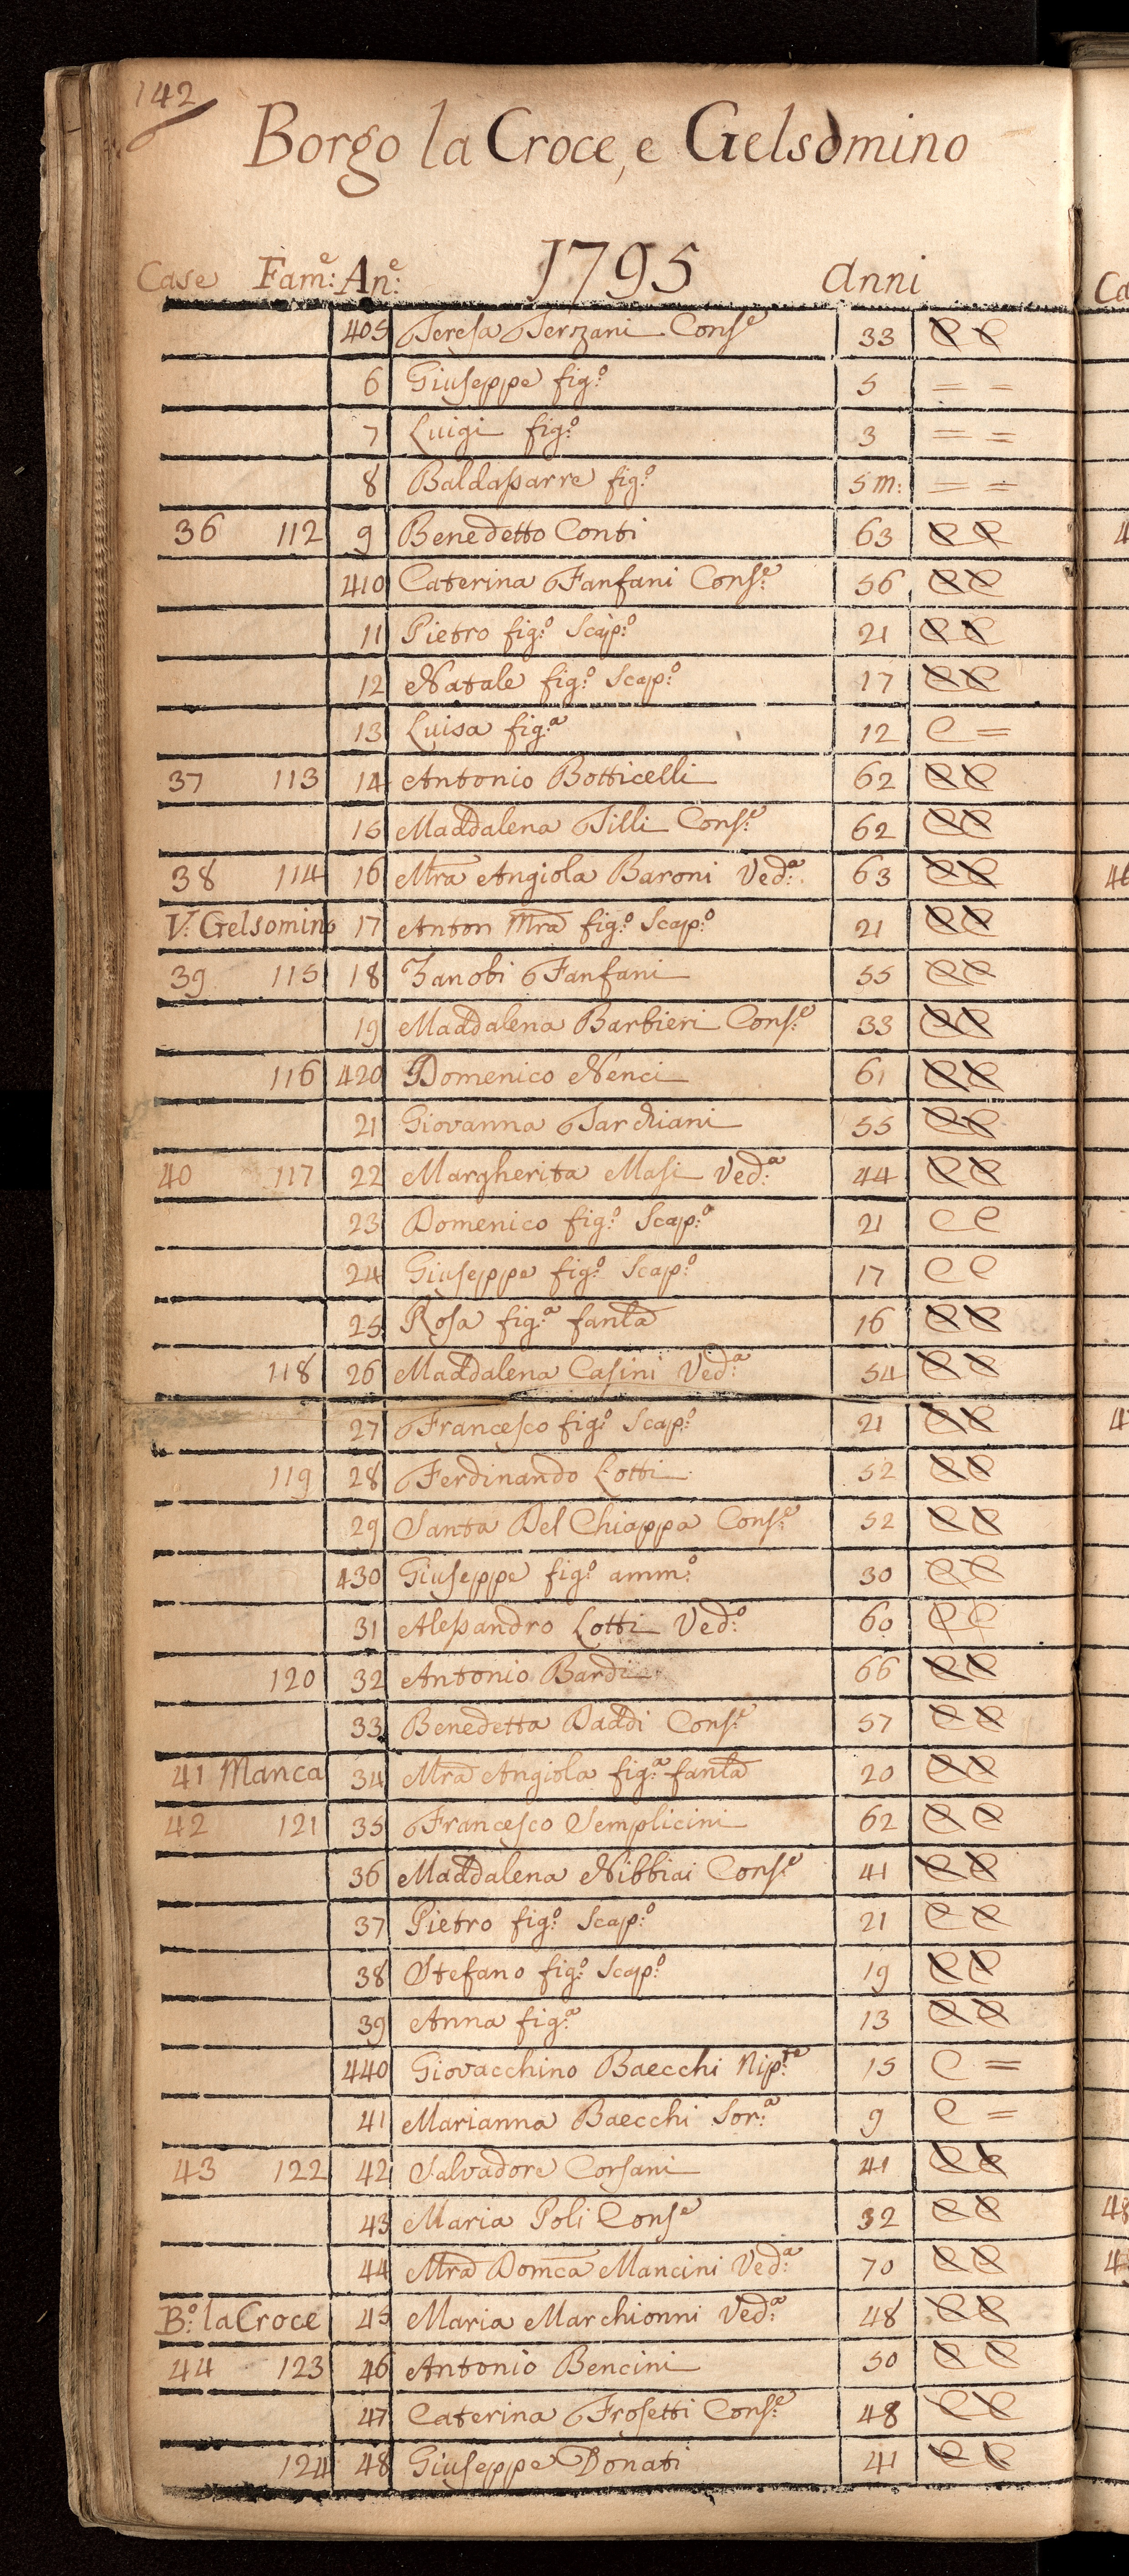 142
Borgo la Croce, e Gelsomino
Case Fam:e An:e 1795 Anni
405 Teresa Terzani Conse 33 e e
6 Giuseppe fig:o 5 = =
7 Luigi fig:o 3 = =
8 Baldassarre fig:o 5 m: = =
36 112 9 Benedetto Conti 63 e e
410 Caterina Fanfani Cons:e 56 e e
11 Pietro fig:o Scap:o 21 e e
12 Natale fig:o Scap:o 17 e e
13 Luisa fig:a 12 e =
37 113 14 Antonio Botticelli 62 e e
15 Maddalena Tilli Cons:e 62 e e
38 114 16 Mra Angiola Baroni Ved:a 63 e e
V: Gelsomino 17 Anton Mra fig:o Scap:o 21 e e
39 115 18 Zanobi Fanfani 55 e e
19 Maddalena Barbieri Cons:e 33 e e
116 420 Domenico Nenci 61 e e
21 Giovanna Tarchiani 55 e e
40 117 22 Margherita Masi Ved:a 44 e e
23 Domenico fig:o Scap:o 21 e e
24 Giuseppe fig:o Scap:o 17 e e
25 Rosa fig:a fanla 16 e e
118 26 Maddalena Casini Ved:a 54 e e
27 Francesco fig:o Scap:o 21 e e
119 28 Ferdinando Lotti 52 e e
29 Santa Del Chiappa Cons:e 52 e e
430 Giuseppe fig:o amm:o 30 e e
31 Alessandro Lotti Ved:o 60 e e
120 32 Antonio Bardi 66 e e
33 Benedetta Daddi Cons:e 57 e e
41 Manca 34 Mra Angiola fig:a fanla 20 e e
42 121 35 Francesco Semplicini 62 e e
36 Maddalena Nibbiai Cons:e 41 e e
37 Pietro fig:o Scap:o 21 e e
38 Stefano fig:o Scap:o 19 e e
39 Anna fig:a 13 e e
440 Giovacchino Baecchi Nip:te 15 e =
41 Marianna Baecchi Sor:a 9 e =
43 122 42 Salvadore Corsani 41 e e
43 Maria Poli Conse 32 e e
44 Mra Domca Mancini Ved:a 70 e e
B:o la Croce 45 Maria Marchionni Ved:a 48 e e
44 123 46 Antonio Bencini 50 e e
47 Caterina Frosetti Cons:e 48 e e
124 48 Giuseppe Donati 41 e e